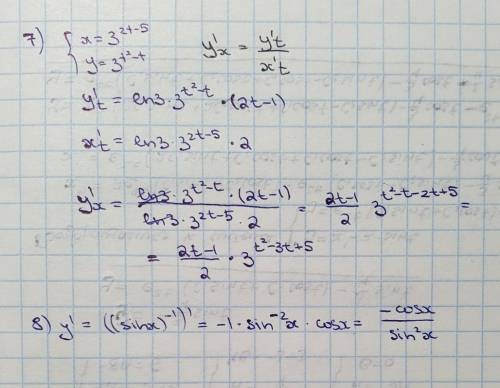 7) { x = 3^{2t-5}
y = 3^{t²-t}
y'x = y't / x't
y't = ln3 · 3^{t²-t} · (2t-1)
x't = ln3 · 3^{2t-5} · 2
y'x = ln3 · 3^{t²-t} · (2t-1) / ln3 · 3^{2t-5} · 2 = 2t-1 / 2 3^{t²-t-2t+5} =
= 2t-1 / 2 · 3^{t²-3t+5}
8) y' = ((sinx)^{-1})' = -1 · sin^{-2}x · cosx = -cosx / sin²x